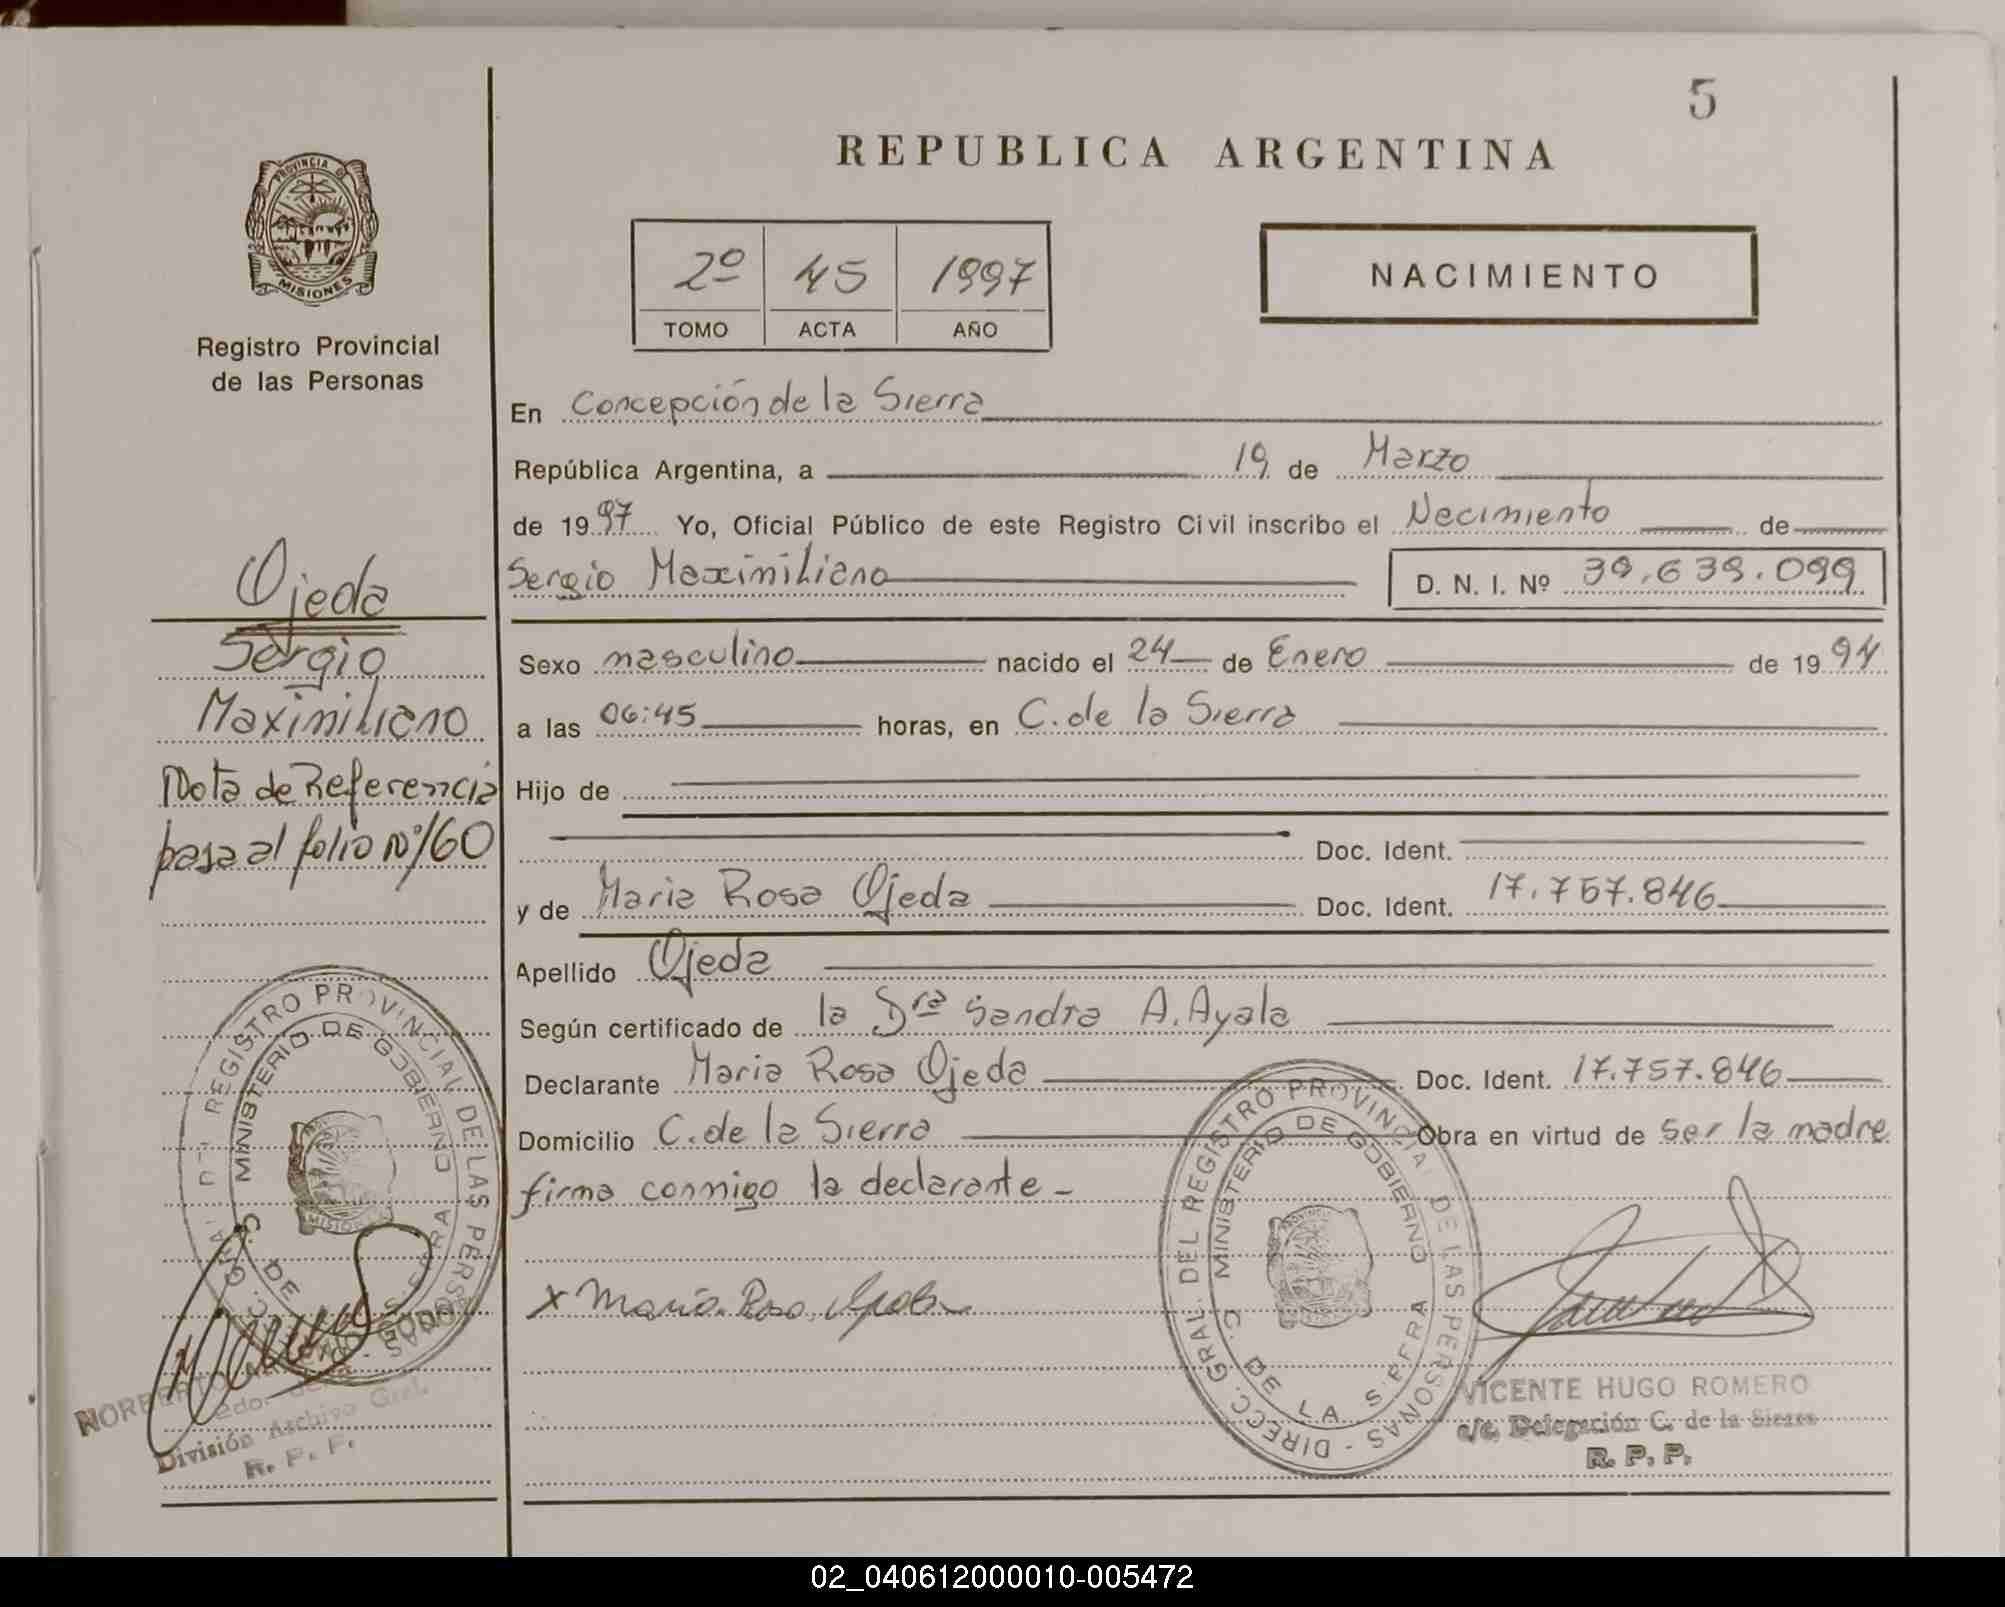 5
REPUBLICA ARGENTINA
PROVINCIA DE
MISIONES
Registro Provincial
de las Personas
2º 45 1997
TOMO ACTA AÑO
NACIMIENTO
En Concepción de la Sierra
República Argentina, a 19 de Marzo
de 1997 Yo, Oficial Público de este Registro Civil inscribo el Nacimiento de
Sergio Maximiliano D. N. I. Nº 39.639.099
Sexo masculino nacido el 24 de Enero de 1994
a las 06:45 horas, en C. de la Sierra
Hijo de
Doc. Ident.
y de Maria Rosa Ojeda Doc. Ident. 17.757.846
Apellido Ojeda
Según certificado de la Dra Sandra A. Ayala
Declarante Maria Rosa Ojeda Doc. Ident. 17.757.846
Domicilio C. de la Sierra Obra en virtud de ser la madre
firma conmigo la declarante -
x Maria Rosa
Ojeda
Sergio
Maximiliano
Nota de Referencia
pasa al folio Nº 160
DIRECC. GRAL. DEL REGISTRO PROVINCIAL DE LAS PERSONAS
MINISTERIO DE GOBIERNO
C. DE LA SIERRA
NORBERTO
División Archivo Gral.
R. P. P.
DIRECC. GRAL. DEL REGISTRO PROVINCIAL DE LAS PERSONAS
MINISTERIO DE GOBIERNO
C. DE LA SIERRA
VICENTE HUGO ROMERO
a/c. Delegación C. de la Sierra
R. P. P.
02_040612000010-005472